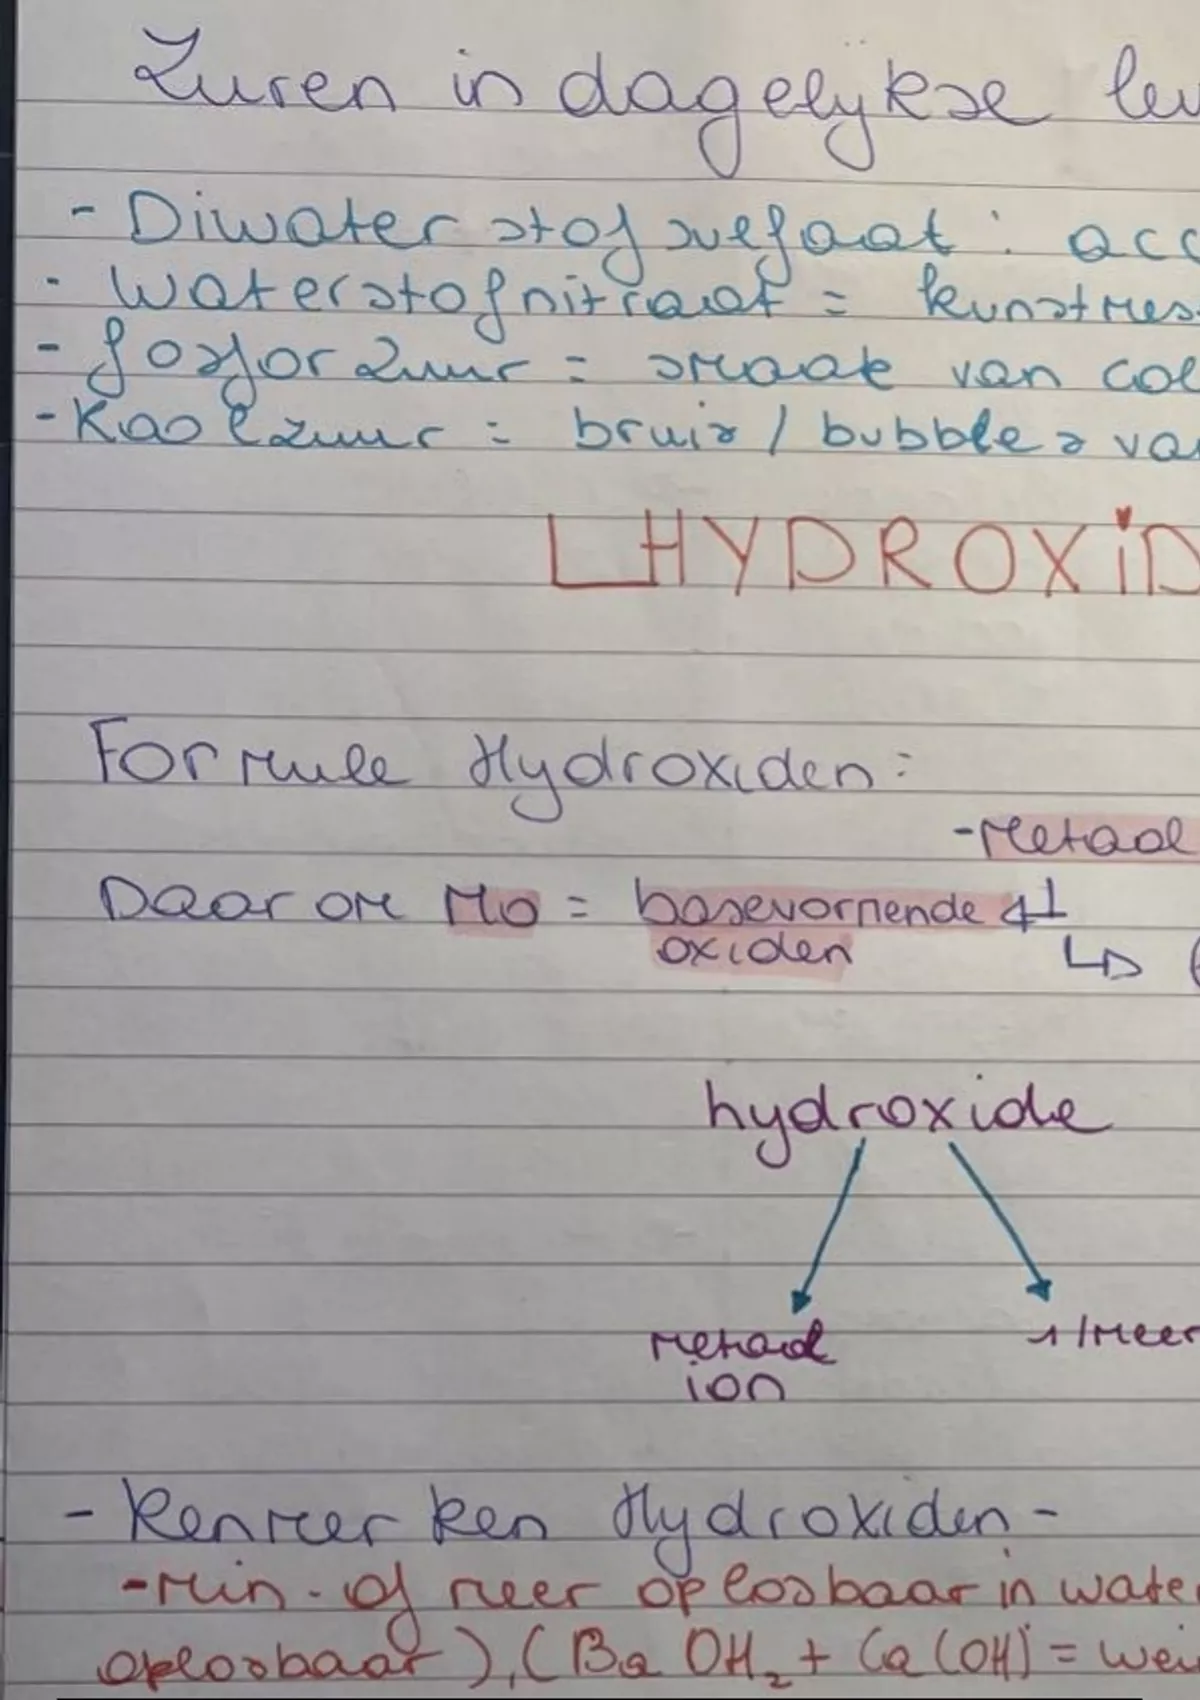 Zuren in dagelijkse lev
- Diwaterstofsulfaat : acc
- Waterstofnitraat = kunstmes
- fosforzuur = smaak van col
- Kaolzuur = bruis / bubbles va
HYDROXiD
Formule Hydroxiden:
- Metaal
Daarom MO = basevormende
oxiden
hydroxide
metaal 1/meer
ion
- Kenmerken Hydroxiden -
- min. of meer oplosbaar in wate
oplosbaar), (Ba OH₂ + Ca (OH) = wei